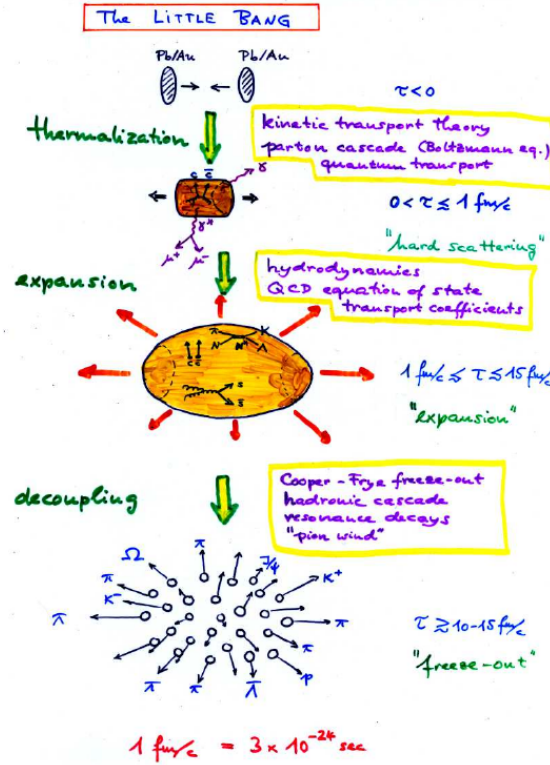 The LITTLE BANG
Pb/Au Pb/Au
τ<0
thermalization
kinetic transport theory
parton cascade (Boltzmann eq.)
quantum transport
c c̄
γ
0 < τ ≲ 1 fm/c
γ*
μ⁺ μ⁻
"hard scattering"
expansion
hydrodynamics
QCD equation of state
transport coefficients
π K
N Λ
c c̄
s
s̄
1 fm/c ≲ τ ≲ 15 fm/c
"expansion"
decoupling
Cooper-Frye freeze-out
hadronic cascade
resonance decays
"pion wind"
Ω π J/ψ
π K⁺
K⁻
π π
τ ≳ 10-15 fm/c
π
"freeze-out"
π π Λ̄ p
1 fm/c = 3 × 10⁻²⁴ sec